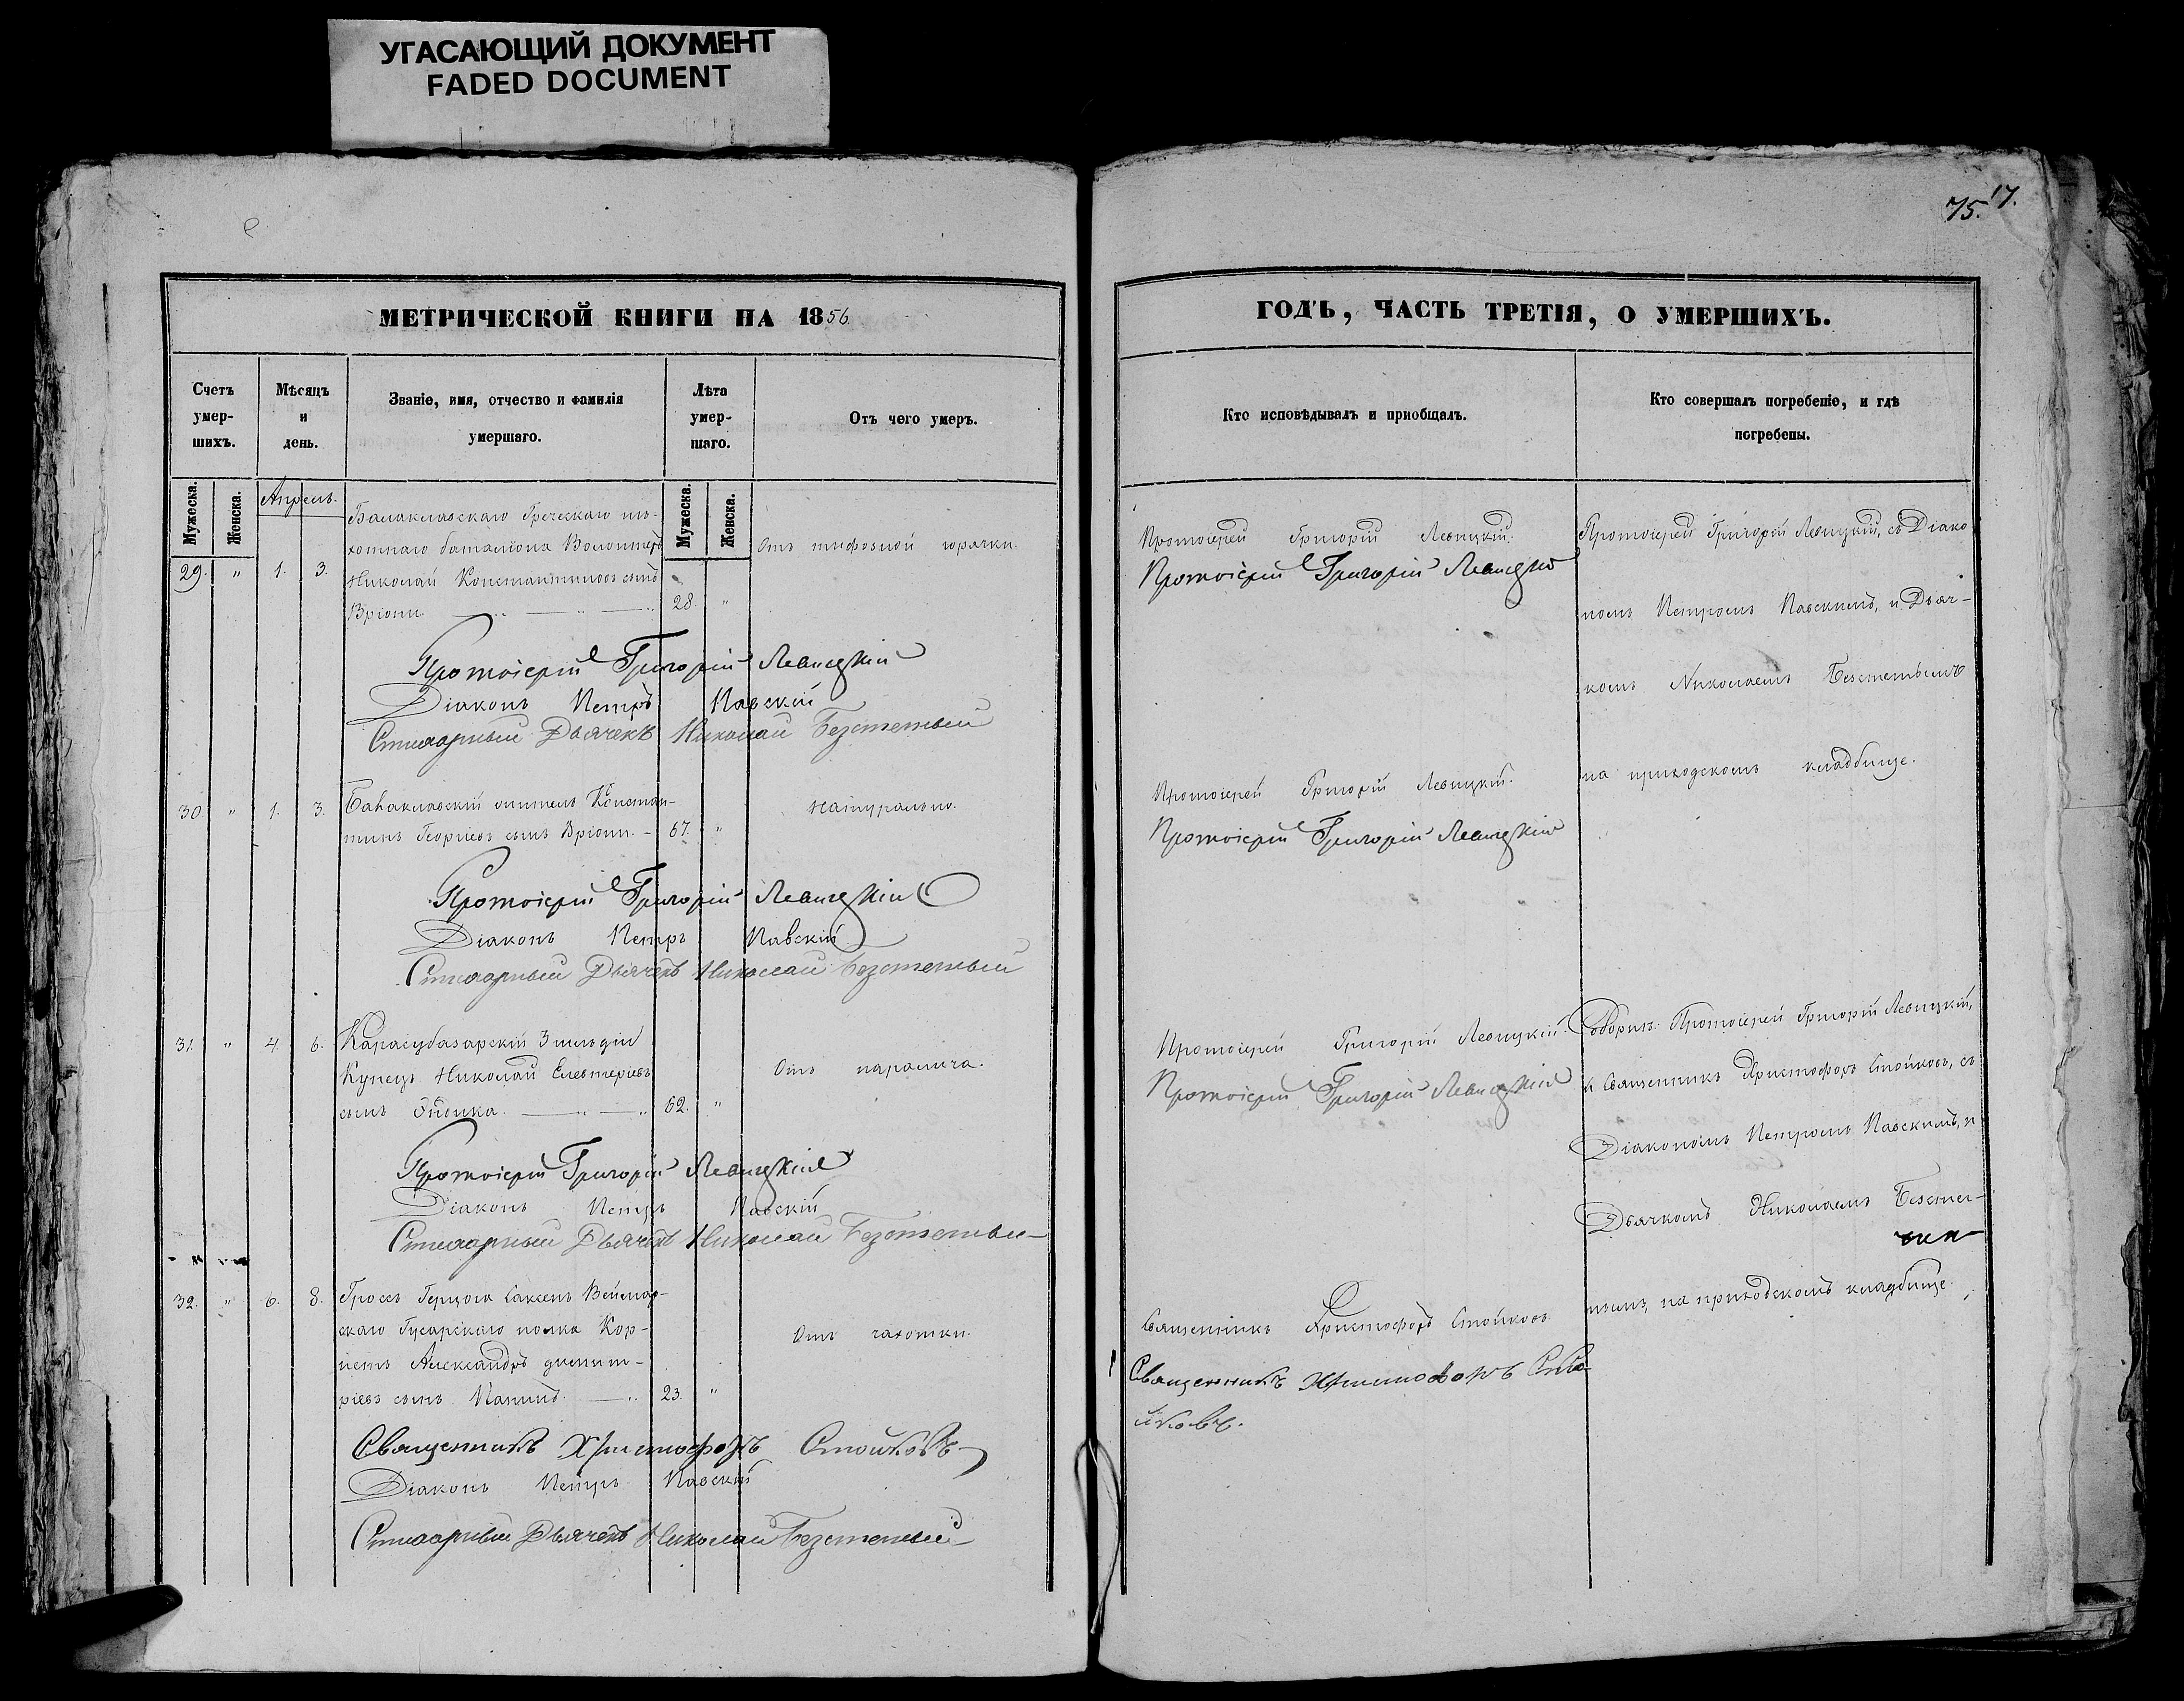 УГАСАЮЩИЙ ДОКУМЕНТ
FADED DOCUMENT
75. 17.
МЕТРИЧЕСКОЙ КНИГИ НА 1856.
Счетъ умер-шихъ.
Мѣсяцъ и день.
Званіе, имя, отчество и фамилія умершаго.
Лѣта умер-шаго.
Отъ чего умеръ.
Мужеска.
Женска.
Апрель.
Мужеска.
Женска.
Балаклавскаго Греческаго пѣ-
29. " 1. 3.
хотнаго баталіона Волонтеръ
Николай Константиновъ сынъ
Вріони 28. "
Отъ тифозной горячки.
Протоіерей Григорій Левицкій
Діаконъ Петръ Павскій
Стихарный Дьячекъ Николай Безстетный
30 " 1. 3. Балаклавскій житель Констан-
тинъ Георгіевъ сынъ Вріони. 67. "
Натурально.
Протоіерей Григорій Левицкій
Діаконъ Петръ Павскій
Стихарный Дьячекъ Николай Безстетный
31. " 4. 6. Карасубазарскій 3 гильдіи
Купецъ Николай Елевтеріевъ
сынъ 62. "
Отъ паралича.
Протоіерей Григорій Левицкій
Діаконъ Петръ Павскій
Стихарный Дьячекъ Николай Безстетный
32. " 6. 8. Гросъ Герцога Саксенъ Веймар-
скаго Гусарскаго полка Кор-
нетъ Александръ Димит-
ріевъ сынъ 23. "
Отъ чахотки.
Священникъ Христофоръ Стойковъ
Діаконъ Петръ Павскій
Стихарный Дьячекъ Николай Безстетный
ГОДЪ, ЧАСТЬ ТРЕТІЯ, О УМЕРШИХЪ.
Кто исповѣдывалъ и приобщалъ.
Кто совершалъ погребеніе, и гдѣ
погребены.
Протоіерей Григорій Левицкій.
Протоіерей Григорій Левицкій
Протоіерей Григорій Левицкій, съ Діако
номъ Петромъ Павскимъ, и Дьяч-
комъ Николаемъ Безстетнымъ
на приходскомъ кладбище.
Протоіерей Григорій Левицкій.
Протоіерей Григорій Левицкій
Протоіерей Григорій Левицкій.
Протоіерей Григорій Левицкій
Соборнѣ: Протоіерей Григорій Левицкій,
и Священникъ Христофоръ Стойковъ, съ
Діакономъ Петромъ Павскимъ, и
Дьячкомъ Николаемъ Безстет-
нымъ, на приходскомъ кладбище.
Священникъ Христофоръ Стойковъ.
Священникъ Христофоръ Сто-
йковъ.